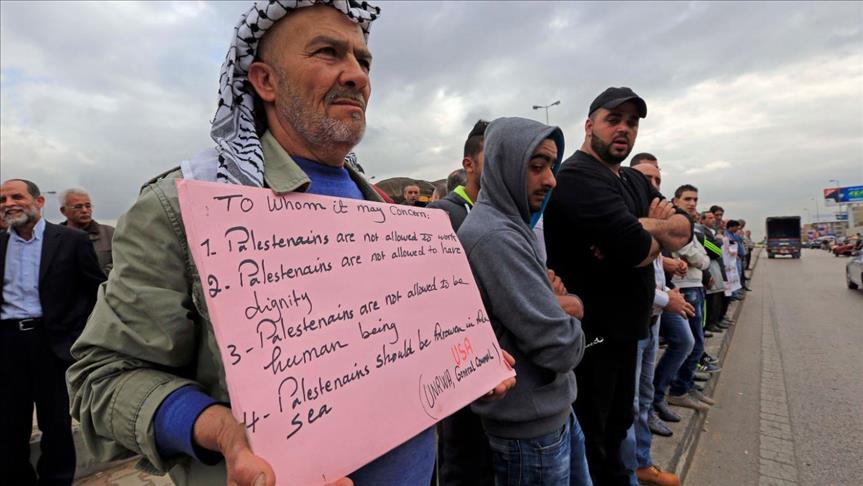 To Whom it may concern:
1. Palestenains are not allowed to work
2- Palestenains are not allowed to have
dignity
3 - Palestenains are not allowed to be
human being
4 - Palestenains should be throwen in the
sea
USA
(UNRWA, General Counsel)